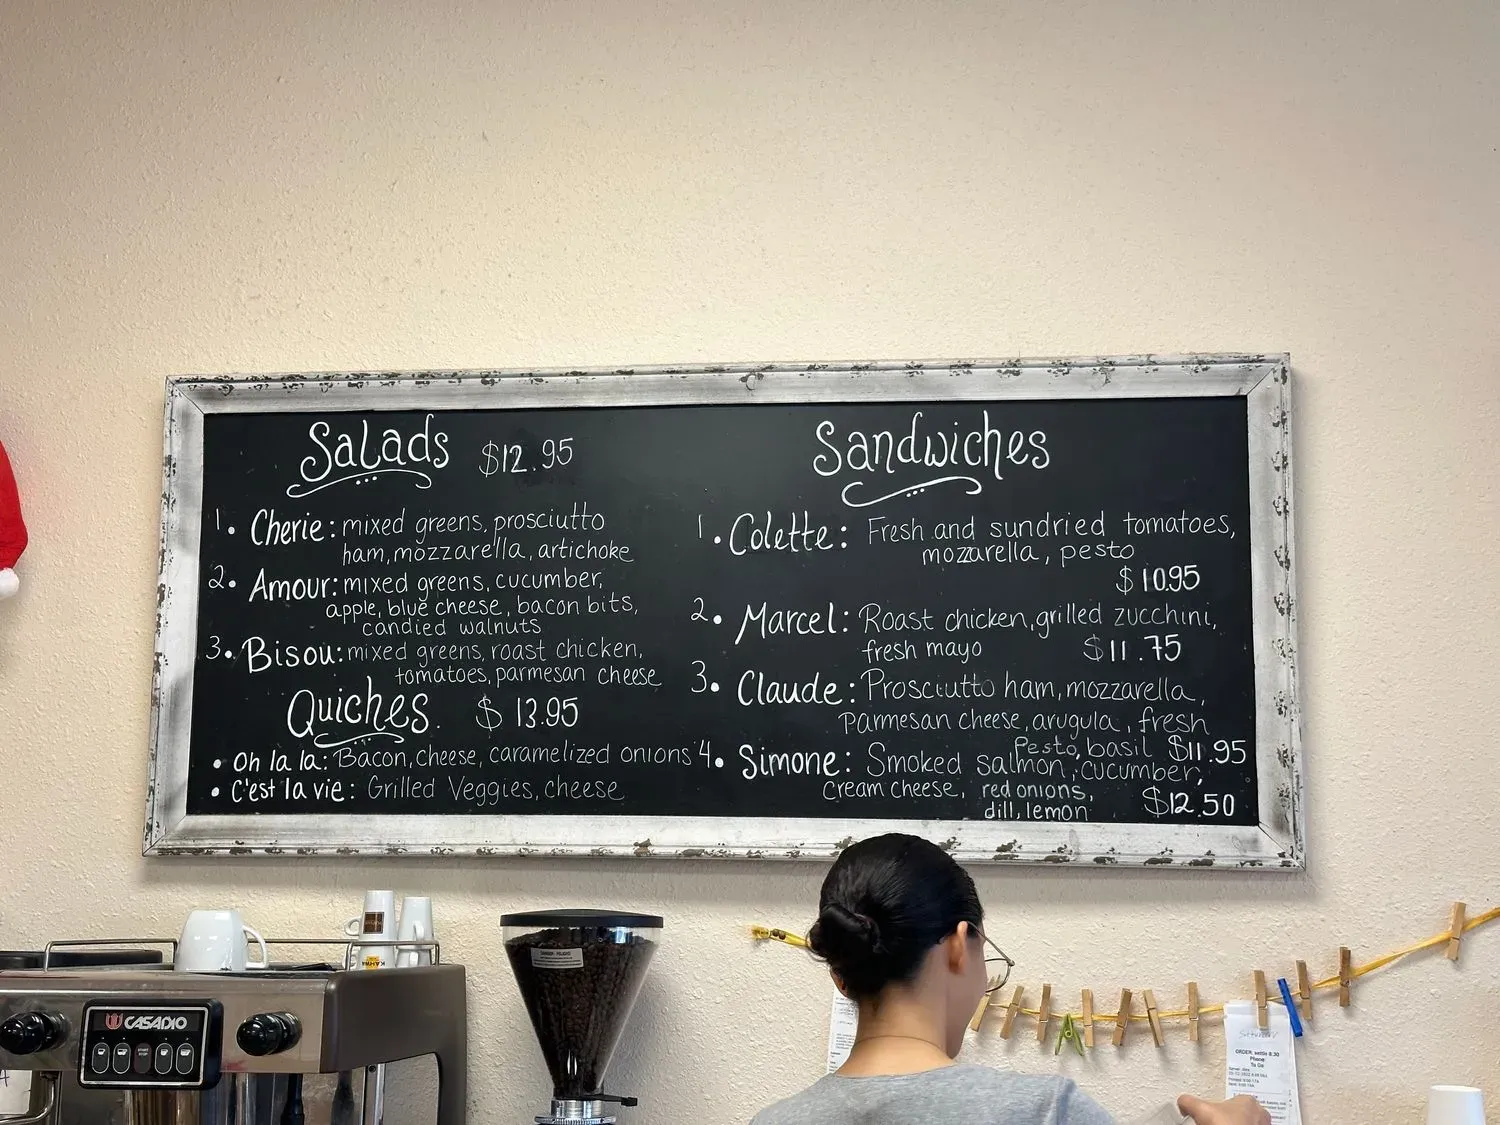 Salads $12.95
1. Cherie: mixed greens, prosciutto
ham, mozzarella, artichoke
2. Amour: mixed greens, cucumber,
apple, blue cheese, bacon bits,
candied walnuts
3. Bisou: mixed greens, roast chicken,
tomatoes, parmesan cheese
Quiches. $13.95
• Oh la la: Bacon, cheese, caramelized onions
• C'est la vie: Grilled Veggies, cheese
Sandwiches
1. Colette: Fresh and sundried tomatoes,
mozarella, pesto
$10.95
2. Marcel: Roast chicken, grilled zucchini,
fresh mayo $11.75
3. Claude: Prosciutto ham, mozzarella,
Parmesan cheese, arugula, fresh
Pesto, basil $11.95
4. Simone: Smoked salmon, cucumber,
cream cheese, red onions,
dill, lemon $12.50
CASADIO
KAHWA
Saturday
ORDER, settle 8:30
Phone
To Go